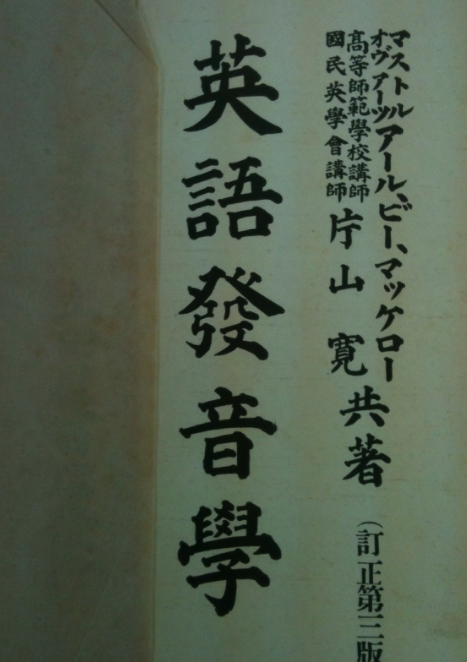 マストル
オヴアーツ
アール、ビー、マッケロー
高等師範學校講師
國民英學會講師
片山寛
共著
(訂正第三版
英語發音學